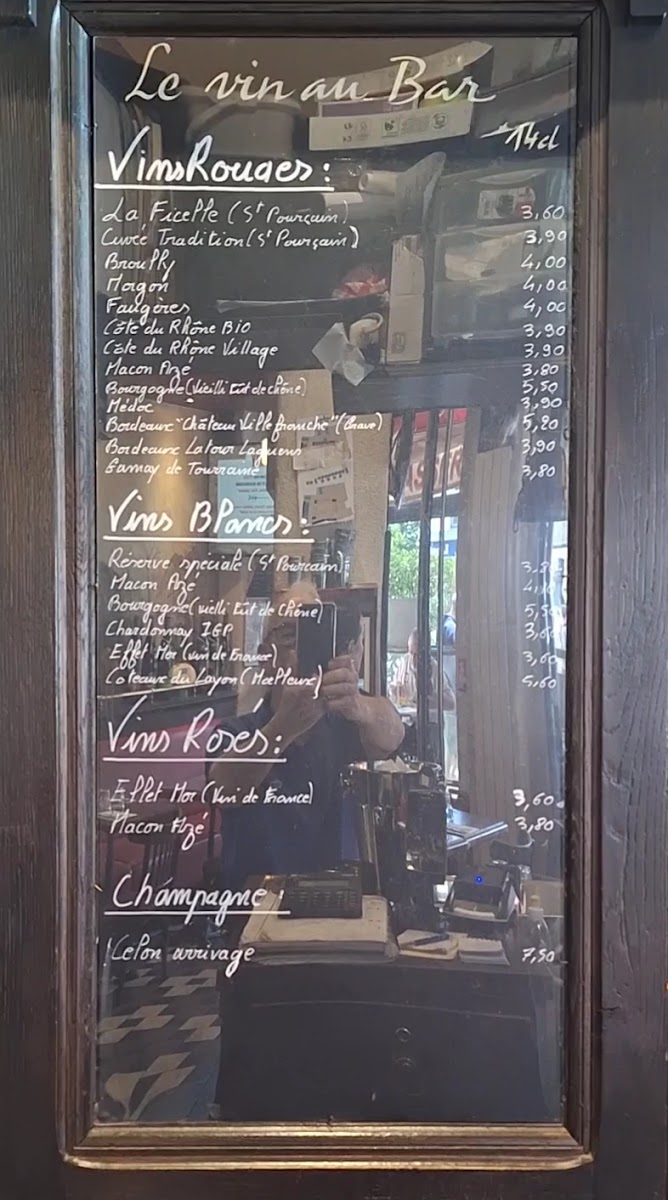 Le vin au Bar
14cl
Vins Rouges:
La Ficelle (St Pourçain) 3,60
Cuvée Tradition (St Pourçain) 3,90
Brouilly 4,00
Morgon 4,00
Faugères 4,00
Côte du Rhône Bio 3,90
Côte du Rhône Village 3,90
Macon Azé 3,80
Bourgogne (Vieilli Fût de Chêne) 5,50
Médoc 3,90
Bordeaux "Château Villefranche" (Grave) 5,20
Bordeaux Latour Laguens 3,90
Gamay de Tourraine 3,80
Vins Blancs:
Réserve speciale (St Pourçain)
Macon Azé
Bourgogne (vieilli Fût de Chêne) 5,50
Chardonnay IGP 3,60
Effet Mer (Vin de France) 3,60
Coteaux du Layon (Moelleux) 5,60
Vins Rosés:
Effet Mer (Vin de France) 3,60
Macon Azé 3,80
Champagne
Selon arrivage 7,50